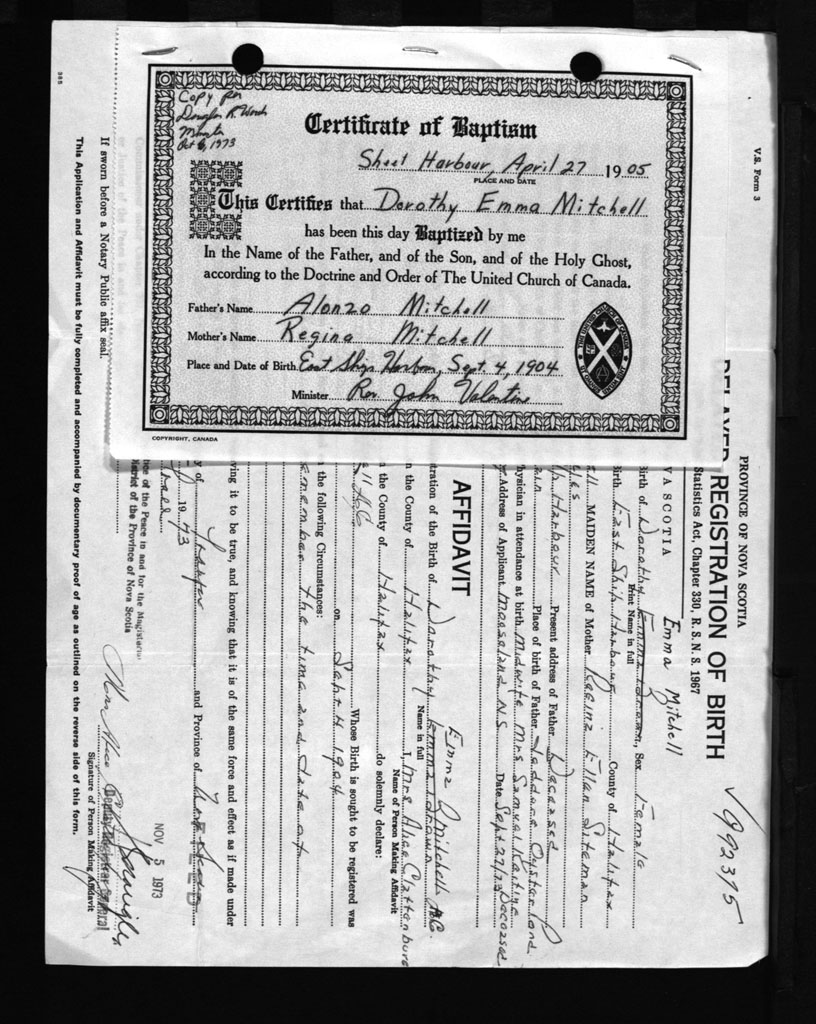 Copy per
Douglas K.
Minister
Oct 6, 1973
Certificate of Baptism
Sheet Harbour, April 27 1905
PLACE AND DATE
This Certifies that Dorothy Emma Mitchell
has been this day Baptized by me
In the Name of the Father, and of the Son, and of the Holy Ghost,
according to the Doctrine and Order of The United Church of Canada.
Father's Name Alonzo Mitchell
Mother's Name Regina Mitchell
Place and Date of Birth East Ship Harbour, Sept. 4, 1904
Minister Rev. John Valentine
COPYRIGHT, CANADA
V.S. Form 3
PROVINCE OF NOVA SCOTIA
DELAYED REGISTRATION OF BIRTH
Statistics Act, Chapter 330, R. S. N. S. 1967
992375
VA SCOTIA
Emma Mitchell
irth of Dorothy Emma Brown, Sex Female
Print Name in full
Birth East Ship Harbour County of Halifax
MAIDEN NAME of Mother Regina Ellen Siteman
Harbour Present address of Father Deceased
Place of birth of Father Jeddore Oyster Pond
hysician in attendance at birth Midwife Mrs Samuel Keating
Deceased
Address of Applicant Mooseland NS Date Sept 27/73
AFFIDAVIT
Emma Mitchell A.C.
tration of the Birth of Dorothy Emma Brown
Name in full
I, Mrs Alice Clattenburg
Name of Person Making Affidavit
n the County of Halifax
n the County of Halifax do solemnly declare:
Whose Birth is sought to be registered was
on Sept 4 1904
the following Circumstances:
remember the time and date of
ving it to be true, and knowing that it is of the same force and effect as if made under
y of Halifax and Province of Nova Scotia
19 73
NOV 5 1973
Mrs Alice
Deputy Registrar General
Signature of Person Making Affidavit
ce of the Peace in and for the Magisterial
District of the Province of Nova Scotia
If sworn before a Notary Public affix seal.
This Application and Affidavit must be fully completed and accompanied by documentary proof of age as outlined on the reverse side of this form.